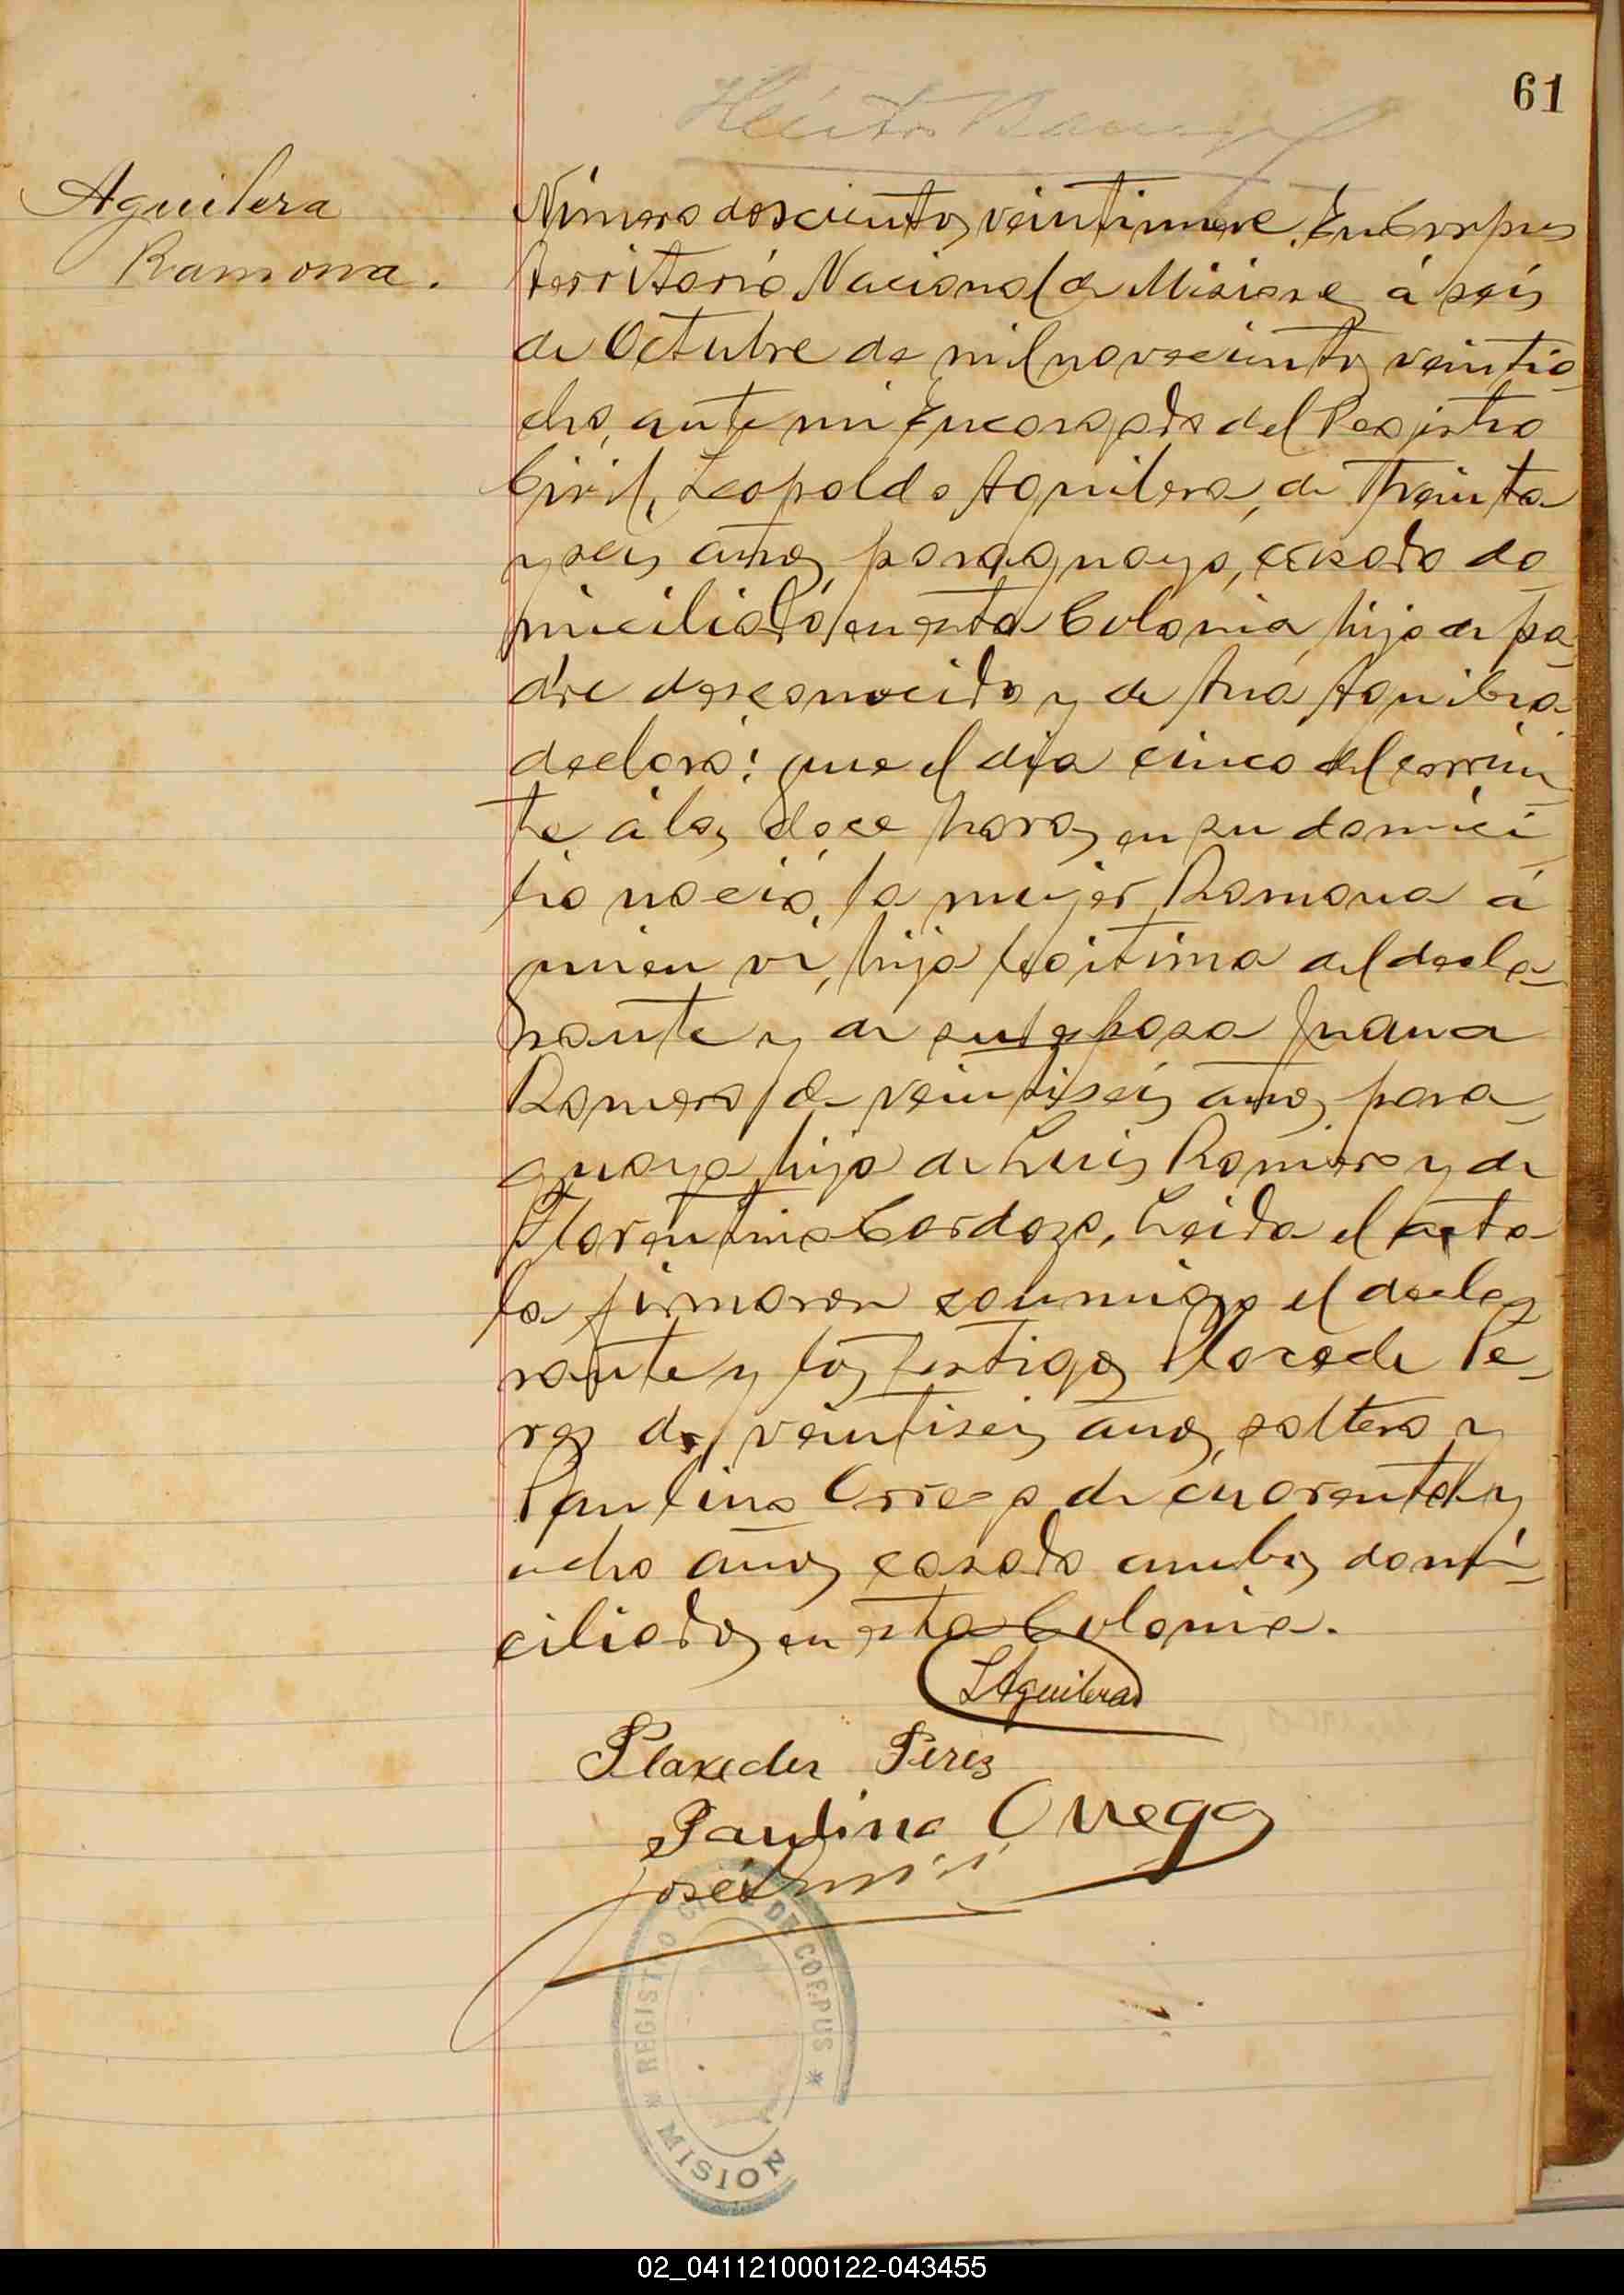 61
Aguilera
Ramona.
Número doscientos veintinueve. En Corpus
territorio Nacional de Misiones, á seis
de Octubre de mil novecientos veintio-
cho, ante mi Encargado del Registro
Civil, Leopoldo Aguilera, de treinta
y seis años, paraguayo, casado do-
miciliado en esta Colonia, hijo de pa-
dre desconocido y de Ana Aguilera
declara: que el dia cinco del corrien-
te á las doce horas en su domici-
lio nació, la mujer Ramona á
quien vi, hija legitima del decla-
rante y de su esposa Juana
Romero, de veintiseis años, para-
guaya hija de Luis Romero y de
Florentina Cardozo, Leida el acta
la firmaron conmigo el decla-
rante y los testigos Plaxede Pe-
res de veintiseis años, soltero y
Paulino Orrego de cuarenta y
ocho años casado ambos domi-
ciliados en esta Colonia.
LAguilera
Plaxedes Perez
Paulino Orrego
José
REGISTRO CIVIL DE CORPUS
MISION
02_041121000122-043455